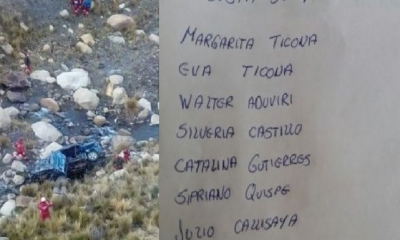 MARGARITA TICONA
EVA TICONA
WALTER ADUVIRI
SILVERIA CASTILLO
CATALINA GUTIERRES
SIPRIANO QUISPE
JULIO CALLISAYA